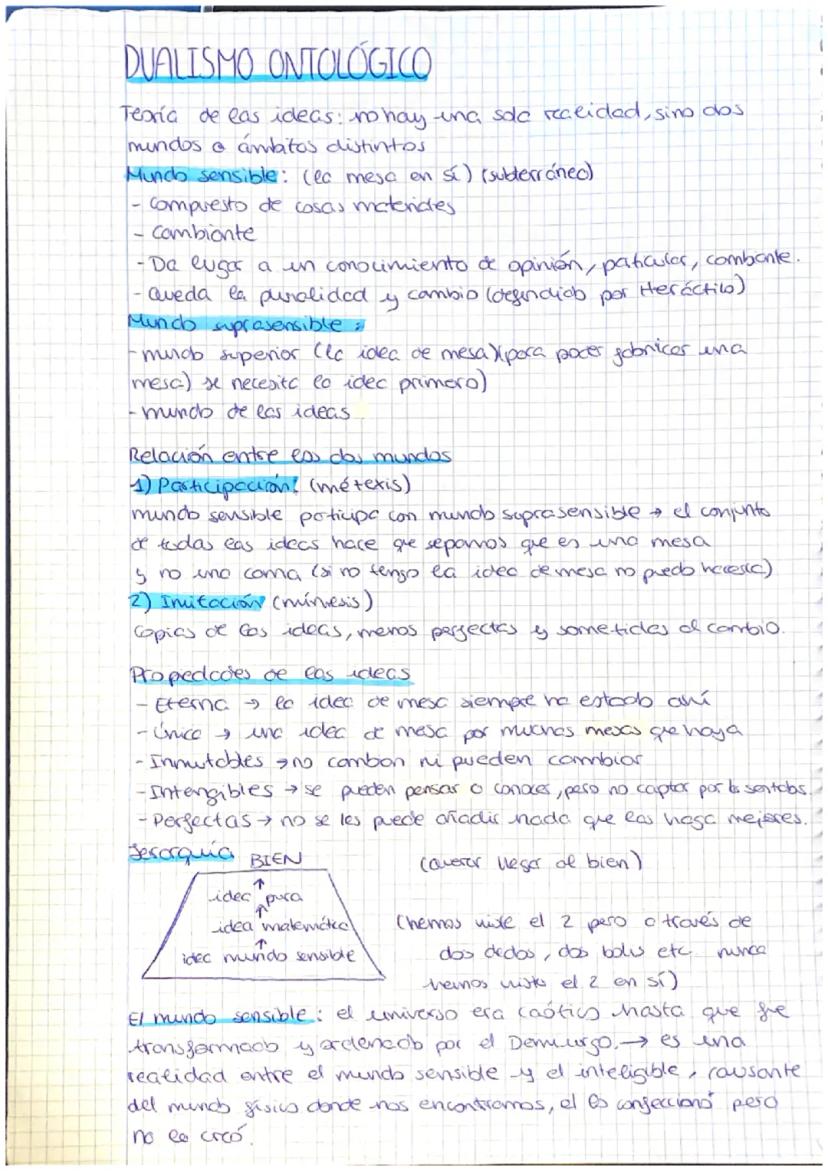 DUALISMO ONTOLÓGICO
Teoría de las ideas: no hay una sola realidad, sino dos
mundos o ámbitos distintos
Mundo sensible: (la mesa en sí) (subterráneo)
- Compuesto de cosas materiales
- Cambiante
- Da lugar a un conocimiento de opinión, paticular, cambiante.
- Queda la pluralidad y cambio (defendido por Heráclito)
Mundo suprasensible:
- mundo superior (la idea de mesa) (para poder fabricar una
mesa) se necesita la idea primero)
- mundo de las ideas
Relación entre los dos mundos
1) Participación: (métexis)
mundo sensible participa con mundo suprasensible → el conjunto
de todas las ideas hace que sepamos que es una mesa
y no una cama (si no tengo la idea de mesa no puedo hacerla)
2) Imitación (mímesis)
Copias de las ideas, menos perfectas y sometidas al cambio.
Propedades de las ideas
- Eterna → la idea de mesa siempre ha estado ahí
- Única → una idea de mesa por muchas mesas que haya
- Inmutables → no cambian ni pueden cambiar
- Intengibles → se pueden pensar o conocer, pero no captar por los sentidos.
- Perfectas → no se les puede añadir nada que las haga mejores.
Jerarquía BIEN
(querer llegar al bien)
↑
idea pura
↑
idea matemática
↑
idea mundo sensible
(hemos visto el 2 pero a través de
dos dedos, dos bolis etc nunca
hemos visto el 2 en sí)
El mundo sensible: el universo era caótico hasta que fue
transformado y ordenado por el Demiurgo. → es una
realidad entre el mundo sensible y el inteligible, causante
del mundo físico donde nos encontramos, el lo confeccionó pero
no lo creó.